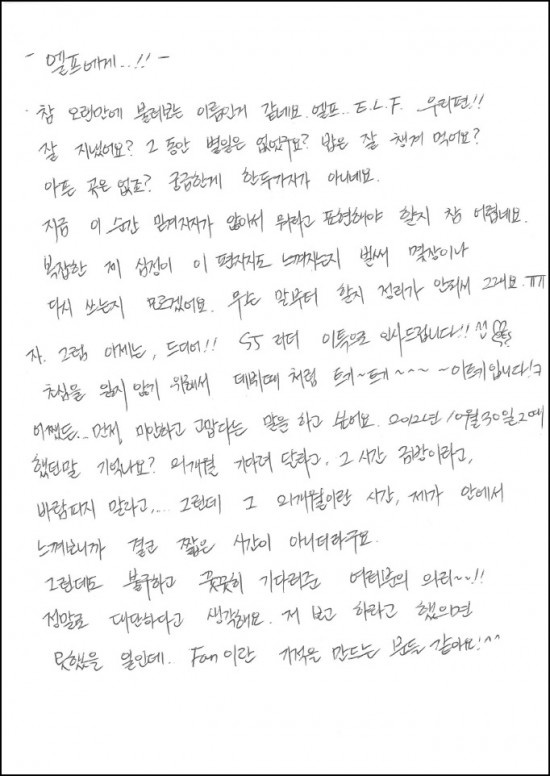 - 엘프에게..!! -
참 오랜만에 불러보는 이름인거 같네요. 엘프.. E.L.F. 우리편!!
잘 지냈어요? 그 동안 별일은 없었구요? 밥은 잘 챙겨 먹어요?
아픈 곳은 없죠? 궁금한게 한두가지가 아니네요.
지금 이 순간 믿겨지지가 않아서 뭐라고 표현해야 할지 참 어렵네요.
복잡한 제 심정이 이 편지지도 느껴지는지 벌써 몇장이나
다시 쓰는지 모르겠어요. 무슨 말부터 할지 정리가 안되서 그래요.ㅠㅠ
자. 그럼 이제는, 드디어!! SJ 리더 이특으로 인사드립니다!! ^^
초심을 잃지 않기 위해서 데뷔때 처럼 트키~트키~~~ ~이트키입니다!ㅋ
어쨌든.. 먼저, 미안하고 고맙다는 말을 하고 싶어요. 2012년 10월 30일 그때
했던말 기억나요? 21개월 기다려 달라고, 그 시간 금방이라고,
바람피지 말라고,... 그런데 그 21개월이란 시간, 제가 안에서
느껴보니까 결코 짧은 시간이 아니더라구요.
그런데도 불구하고 꿋꿋히 기다려준 여러분의 의리~~!!
정말로 대단하다고 생각해요. 저 보고 하라고 했으면
못했을 일인데. Fan이란 기적을 만드는 분들 같아요!^^